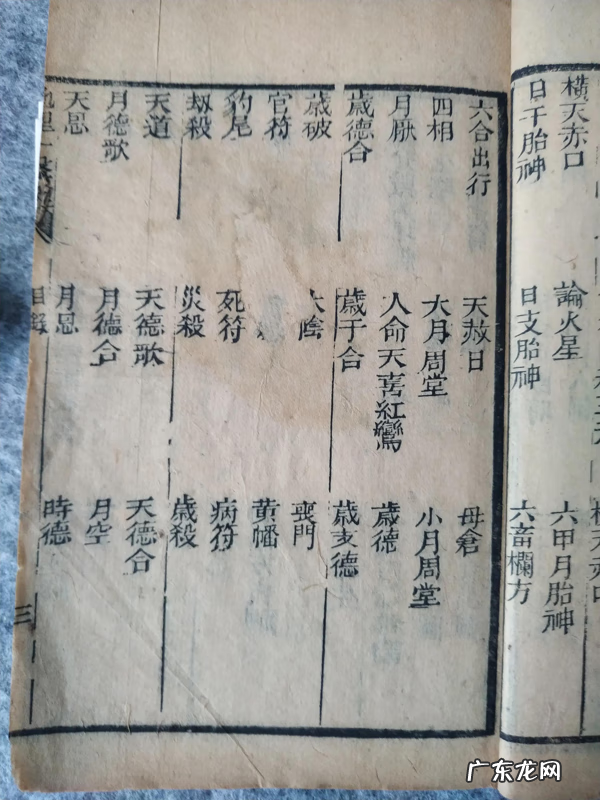 橫天赤口 論火星 六甲月胎神
日干胎神 日支胎神 六畜欄方
六合出行 天赦日 母倉
四相 大月周堂 小月周堂
月厭 人命天喜紅鸞 歲德
歲德合 歲干合 歲支德
歲破 太陰 喪門
官符 黃幡
豹尾 死符 病符
劫殺 災殺 歲殺
天道 天德歌 天德合
月德歌 月德合 月空
天恩 月恩 時德
目錄 三
广东龙网